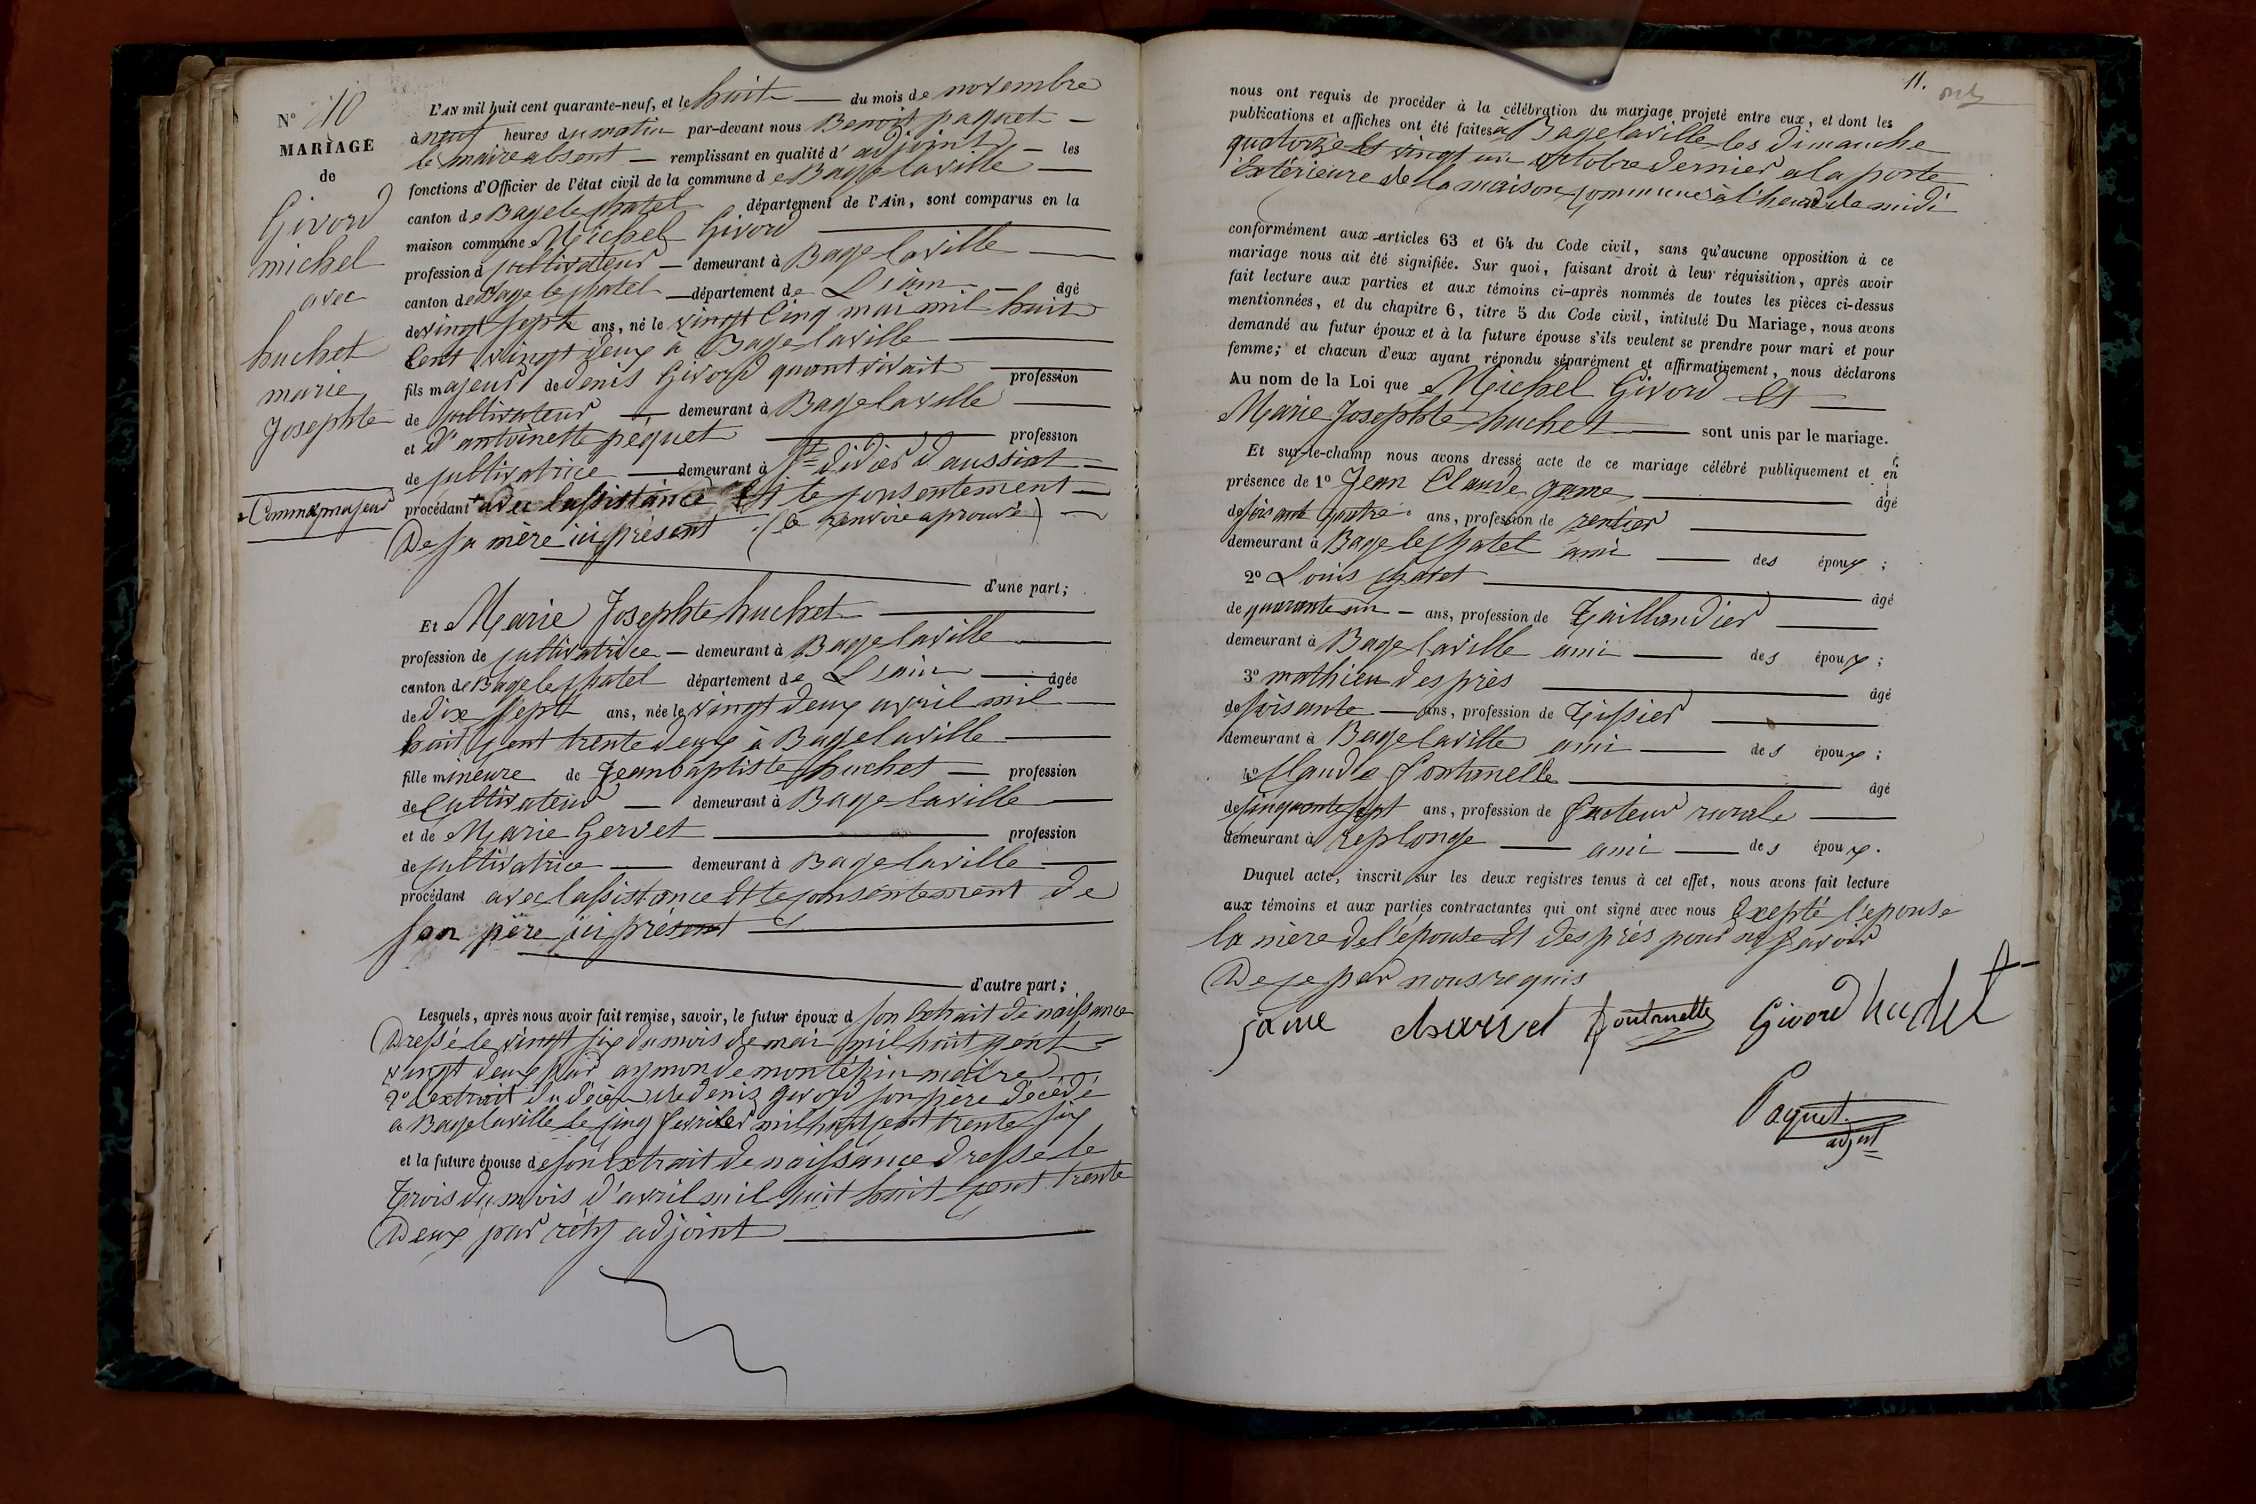 N° 10
MARIAGE
de
Givord
michel
avec
huchet
marie
Josephte
+ Comme majeur
L'AN mil huit cent quarante-neuf, et le huit du mois de novembre
à neuf heures du matin par-devant nous Benoit paquet
le maire absent remplissant en qualité d'adjoint les
fonctions d'Officier de l'état civil de la commune de Bagelaville
canton de Bagelechatel département de l'Ain, sont comparus en la
maison commune Michel Givord
profession d cultivateur demeurant à Bagelaville
canton de Bagelechatel département de L'ain âgé
de vingt sept ans, né le vingt cinq mai mil huit
Cent vingt deux à Bagelaville
fils majeur de denis Givord quant vivait profession
de cultivateur demeurant à Bagelaville
et d'antoinette pequet profession
de cultivatrice demeurant à St didier d'aussiat
procédant + avec lassistance Et le consentement
De sa mère ici présent (le renvoie aprouvé)
d'une part;
Et Marie Josephte huchet
profession de cultivatrice demeurant à Bagelaville
canton de Bagelechatel département de L'ain âgée
de dix sept ans, née le vingt deux avril mil
huit cent trente deux à Bagelaville
fille mineure de Jeanbaptiste huchet profession
de Cultivateur demeurant à Bagelaville
et de Marie Gervet profession
de cultivatrice demeurant à Bagelaville
procédant avec lassistance Et le consentement de
son père ici présent
d'autre part;
Lesquels, après nous avoir fait remise, savoir, le futur époux d son Extrait de naissance
Dressé le vingt six du mois de mai mil huit cent
vingt deux par aymon de montépin maire
2° Lextrait du décès de denis givord son père décédé
a Bagelaville le cinq fevrier mil huit cent trente six
et la future épouse de son Extrait de naissance dressé le
Trois du mois d'avril mil huit huit Cent trente
Deux par adjoint
11.
nous ont requis de procéder à la célébration du mariage projeté entre eux, et dont les
publications et affiches ont été faites à Bagelaville les dimanche
quatorze Et vingt un octobre dernier a la porte
Extérieure de la maison commune à l'heure de midi
conformément aux articles 63 et 64 du Code civil, sans qu'aucune opposition à ce
mariage nous ait été signifiée. Sur quoi, faisant droit à leur réquisition, après avoir
fait lecture aux parties et aux témoins ci-après nommés de toutes les pièces ci-dessus
mentionnées, et du chapitre 6, titre 5 du Code civil, intitulé Du Mariage, nous avons
demandé au futur époux et à la future épouse s'ils veulent se prendre pour mari et pour
femme; et chacun d'eux ayant répondu séparément et affirmativement, nous déclarons
Au nom de la Loi que Michel Givord Et
Marie Josephte huchet sont unis par le mariage.
Et sur-le-champ nous avons dressé acte de ce mariage célébré publiquement et en
présence de 1° Jean Claude game âgé
de soisante quatre ans, profession de rentier
demeurant à Bagelechatel ami des époux;
2° Louis âgé
de quarante un ans, profession de Taillandier
demeurant à Bagelaville ami des époux;
3° mathieu des près âgé
de soisante ans, profession de Tissier
demeurant à Bagelaville ami des époux;
4° Claude fontanelle âgé
de cinquante sept ans, profession de facteur rurale
demeurant à replonge ami des époux.
Duquel acte, inscrit sur les deux registres tenus à cet effet, nous avons fait lecture
aux témoins et aux parties contractantes qui ont signé avec nous Exepté l'epouse
la mère de l'épouse Et des près pour ne savoir
De ce par nous requis
game fontanelle Givord huchet
Paquet
adjoint